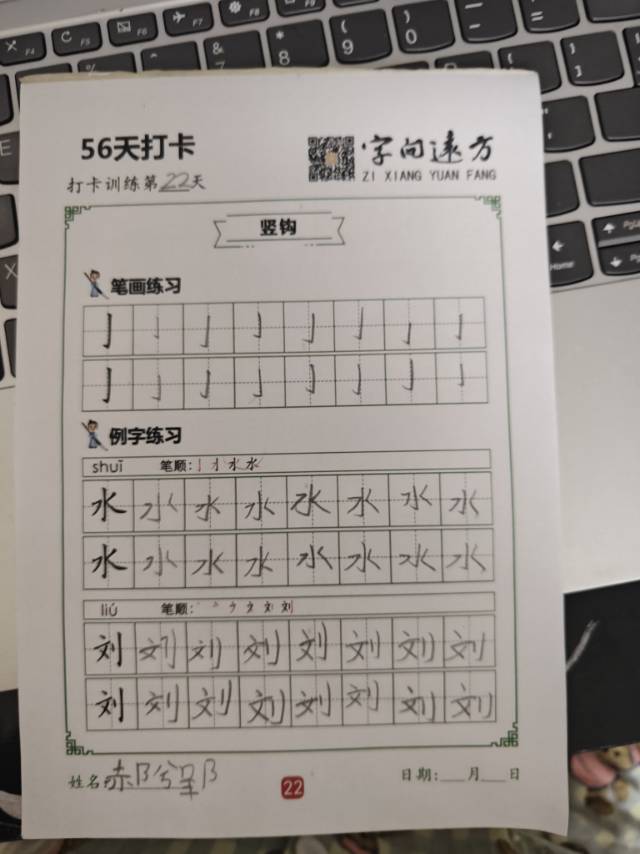 56天打卡
字向远方
ZI XIANG YUAN FANG
打卡训练第22天
竖钩
笔画练习
亅 亅 亅 亅 亅 亅 亅 亅
亅 亅 亅 亅 亅 亅 亅 亅
例字练习
shuǐ 笔顺:
水 水 水 水 水 水 水 水
水 水 水 水 水 水 水 水
liú 笔顺:
刘 刘 刘 刘 刘 刘 刘 刘
刘 刘 刘 刘 刘 刘 刘 刘
姓名:
22
日期:___月___日